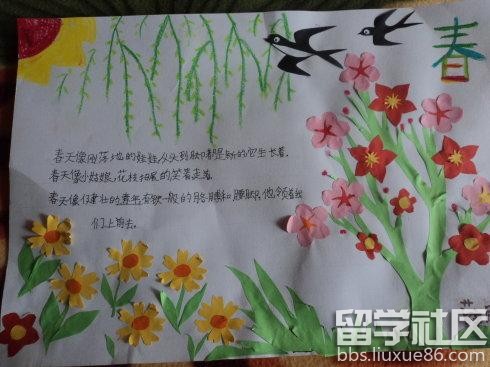 春
春天像刚落地的娃娃,从头到脚都是新的它生长着.
春天像小姑娘,花枝招展的笑着走着.
春天像健壮的青年有铁一般的胳膊和腰脚,他领着我
们上前去。
留学社区
bbs.liuxue86.com